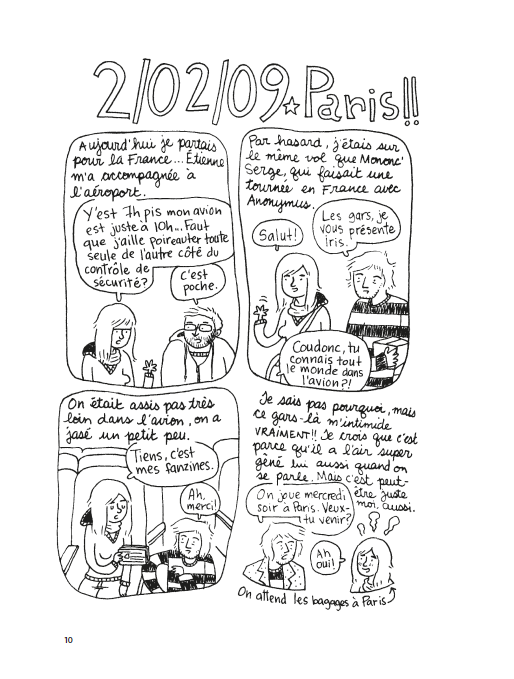 2/02/09☆Paris!!
Aujourd'hui je partais
pour la France... Étienne
m'a accompagnée à
l'aéroport.
Y'est 7h pis mon avion
est juste à 10h... Faut
que j'aille poireauter toute
seule de l'autre côté du
contrôle de
sécurité?
C'est
poche.
Par hasard, j'étais sur
le même vol que Mononc'
Serge, qui faisait une
tournée en France avec
Anonymus.
Salut!
Les gars, je
vous présente
Iris.
Coudonc, tu
connais tout
le monde dans
l'avion?!
On était assis pas très
loin dans l'avion, on a
jasé un petit peu.
Tiens, c'est
mes fanzines.
Ah,
merci!
Je sais pas pourquoi, mais
ce gars-là m'intimide
VRAIMENT!! Je crois que c'est
parce qu'il a l'air super
gêné lui aussi quand on
se parle. Mais c'est peut-
être juste
moi, aussi.
On joue mercredi
soir à Paris. Veux-
tu venir?
Ah
oui!
On attend les bagages à Paris
10